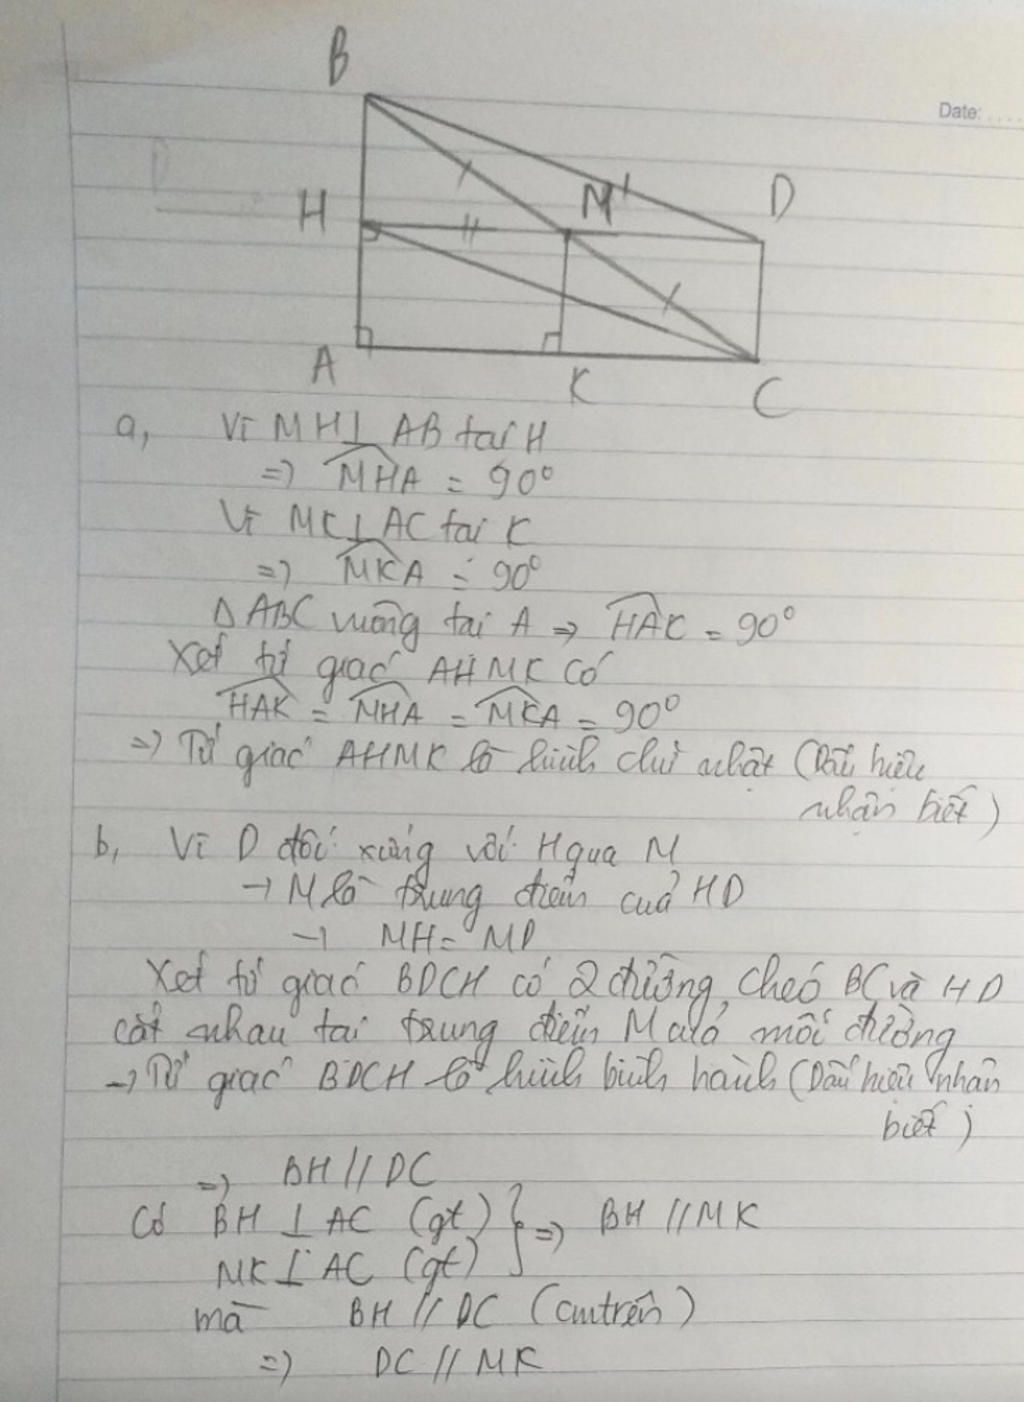 B
Date:
H
M
D
A
K
C
a, Vì MH⊥AB tại H
=> MHA = 90°
Vì MK⊥AC tại K
=> MKA = 90°
Δ ABC vuông tại A => HAK = 90°
Xét tứ giác AHMK có
HAK = MHA = MKA = 90°
=> Tứ giác AHMK là hình chữ nhật (Dấu hiệu
nhận biết)
b, Vì D đối xứng với H qua M
→ M là trung điểm của HD
→ MH = MD
Xét tứ giác BDCH có 2 đường chéo BC và HD
cắt nhau tại trung điểm M của mỗi đường
→ Tứ giác BDCH là hình bình hành (Dấu hiệu nhận
biết)
=> BH // DC
Có BH ⊥ AC (gt) } => BH // MK
MK ⊥ AC (gt)
mà BH // DC (cmtrên)
=> DC // MK